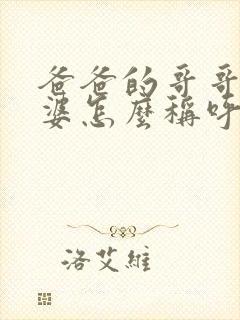 爸爸的哥哥
婆怎麼稱呼
洛艾維